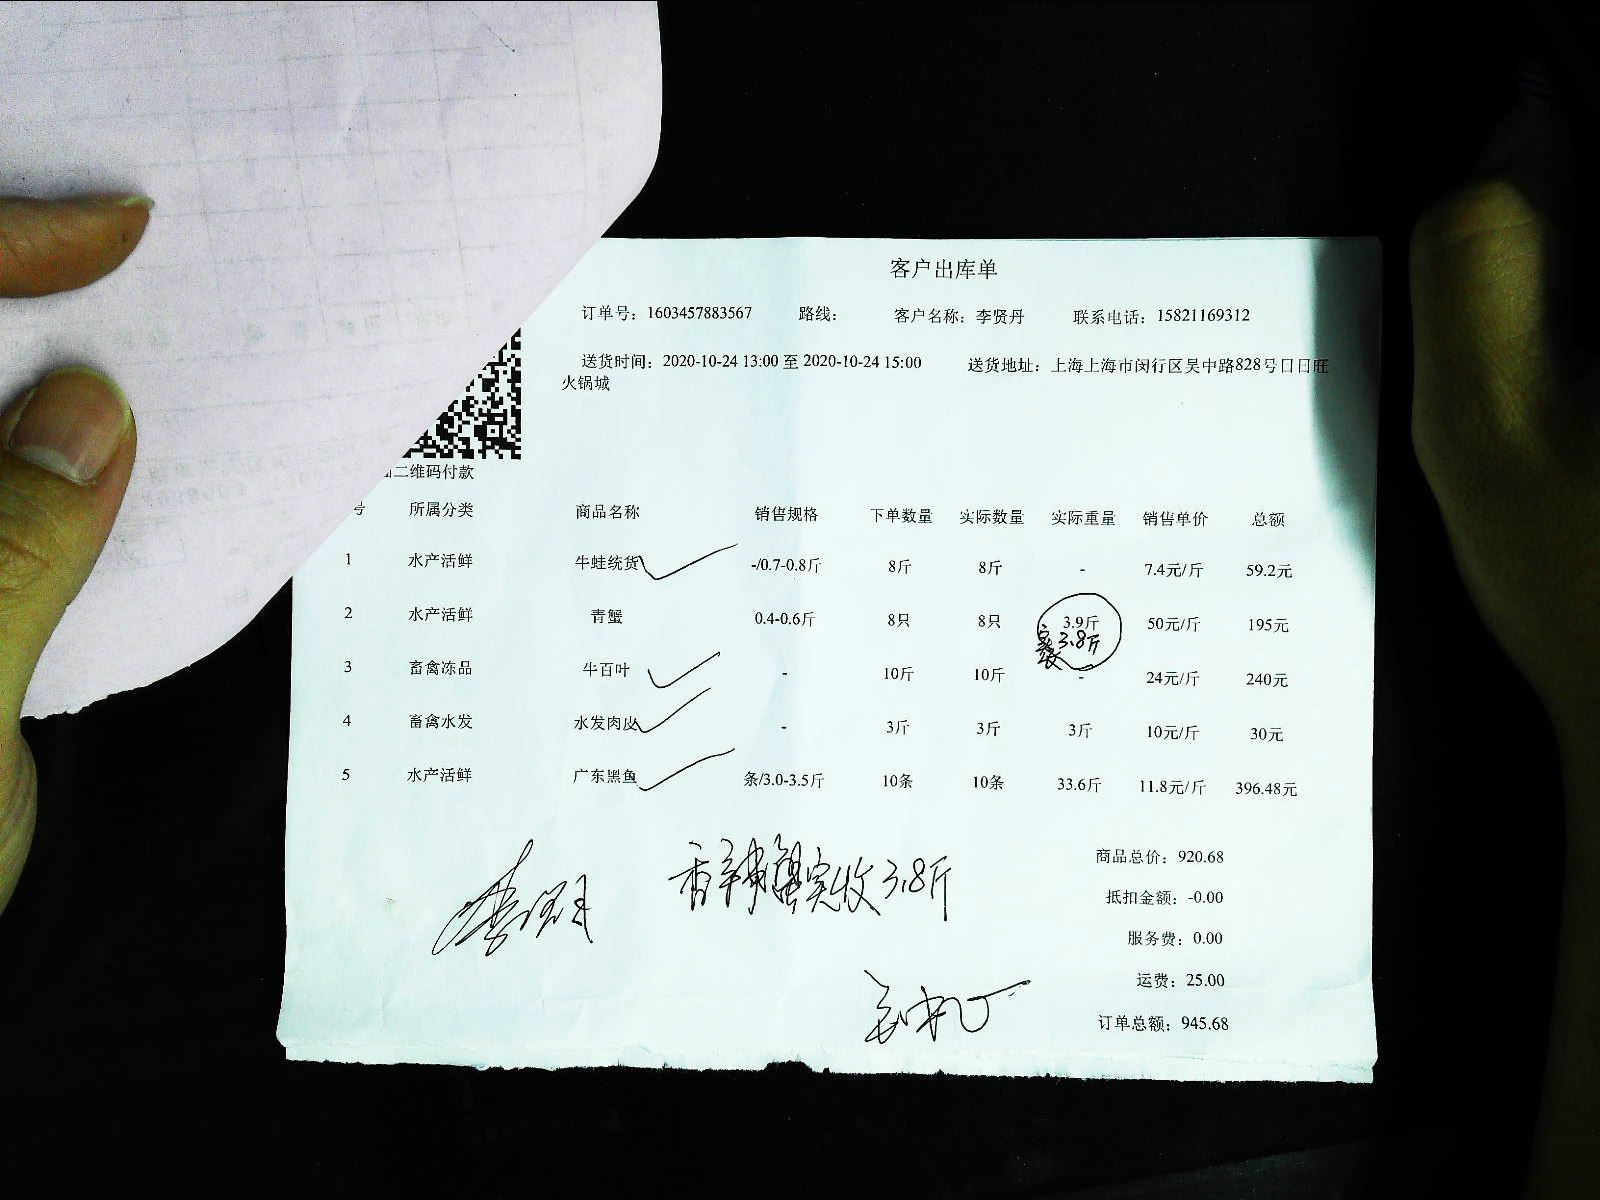 客户出库单
订单号：1603457883567 路线： 客户名称：李贤丹 联系电话：15821169312
送货时间：2020-10-24 13:00 至 2020-10-24 15:00 送货地址：上海上海市闵行区吴中路828号日日旺
火锅城
二维码付款
号 所属分类 商品名称 销售规格 下单数量 实际数量 实际重量 销售单价 总额
1 水产活鲜 牛蛙统货 -/0.7-0.8斤 8斤 8斤 - 7.4元/斤 59.2元
2 水产活鲜 青蟹 0.4-0.6斤 8只 8只 3.9斤 50元/斤 195元
实收3.8斤
3 畜禽冻品 牛百叶 - 10斤 10斤 - 24元/斤 240元
4 畜禽水发 水发肉皮 - 3斤 3斤 3斤 10元/斤 30元
5 水产活鲜 广东黑鱼 条/3.0-3.5斤 10条 10条 33.6斤 11.8元/斤 396.48元
香辣蟹实收3.8斤
商品总价：920.68
抵扣金额：-0.00
服务费：0.00
运费：25.00
订单总额：945.68